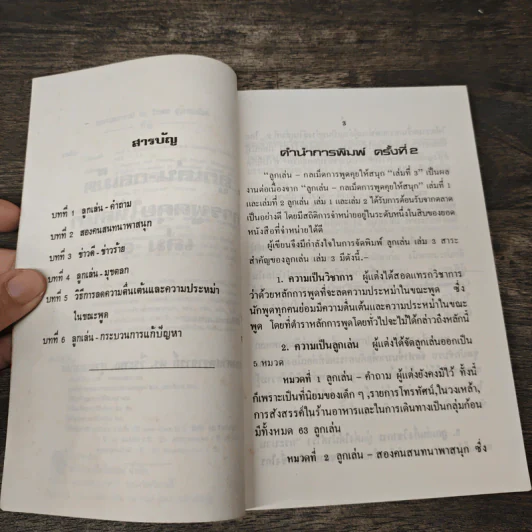 สารบัญ
บทที่ 1 ลูกเล่น - คำถาม
บทที่ 2 สองคนสนทนาพาสนุก
บทที่ 3 ข่าวดี - ข่าวร้าย
บทที่ 4 ลูกเล่น - มุขตลก
บทที่ 5 วิธีการลดความตื่นเต้นและความประหม่า
ในขณะพูด
บทที่ 6 ลูกเล่น - กระบวนการแก้ปัญหา
คำนำการพิมพ์ ครั้งที่ 2
"ลูกเล่น - กลเม็ดการพูดคุยให้สนุก "เล่มที่ 3" เป็นผล
งานต่อเนื่องจาก "ลูกเล่น - กลเม็ดการพูดคุยให้สนุก" เล่มที่ 1
และเล่มที่ 2 ลูกเล่น เล่ม 1 และเล่ม 2 ได้รับการต้อนรับจากตลาด
เป็นอย่างดี โดยมีสถิติการจำหน่ายอยู่ในระดับหนึ่งในสิบของยอด
หนังสือที่จำหน่ายได้
ผู้เขียนจึงมีกำลังใจในการจัดพิมพ์ ลูกเล่น เล่ม 3 สาระ
สำคัญของลูกเล่น เล่ม 3 มีดังนี้.-
1. ความเป็นวิชาการ ผู้แต่งได้สอดแทรกวิชาการ
ว่าด้วยหลักการพูดที่จะลดความประหม่าในขณะพูด ซึ่ง
นักพูดทุกคนย่อมมีความตื่นเต้นและความประหม่าในขณะ
พูด โดยที่ตำราหลักการพูดโดยทั่วไปจะไม่ได้กล่าวถึงหลักนี้
2. ความเป็นลูกเล่น ผู้แต่งได้จัดลูกเล่นออกเป็น
5 หมวด
หมวดที่ 1 ลูกเล่น - คำถาม ผู้แต่งยังคงมีไว้ ทั้งนี้
ก็เพราะเป็นที่นิยมของเด็ก ๆ ,รายการโทรทัศน์,ในวงเหล้า,
การสังสรรค์ในร้านอาหารและในการเดินทางเป็นกลุ่มก้อน
มีทั้งหมด 63 ลูกเล่น
หมวดที่ 2 ลูกเล่น - สองคนสนทนาพาสนุก ซึ่ง